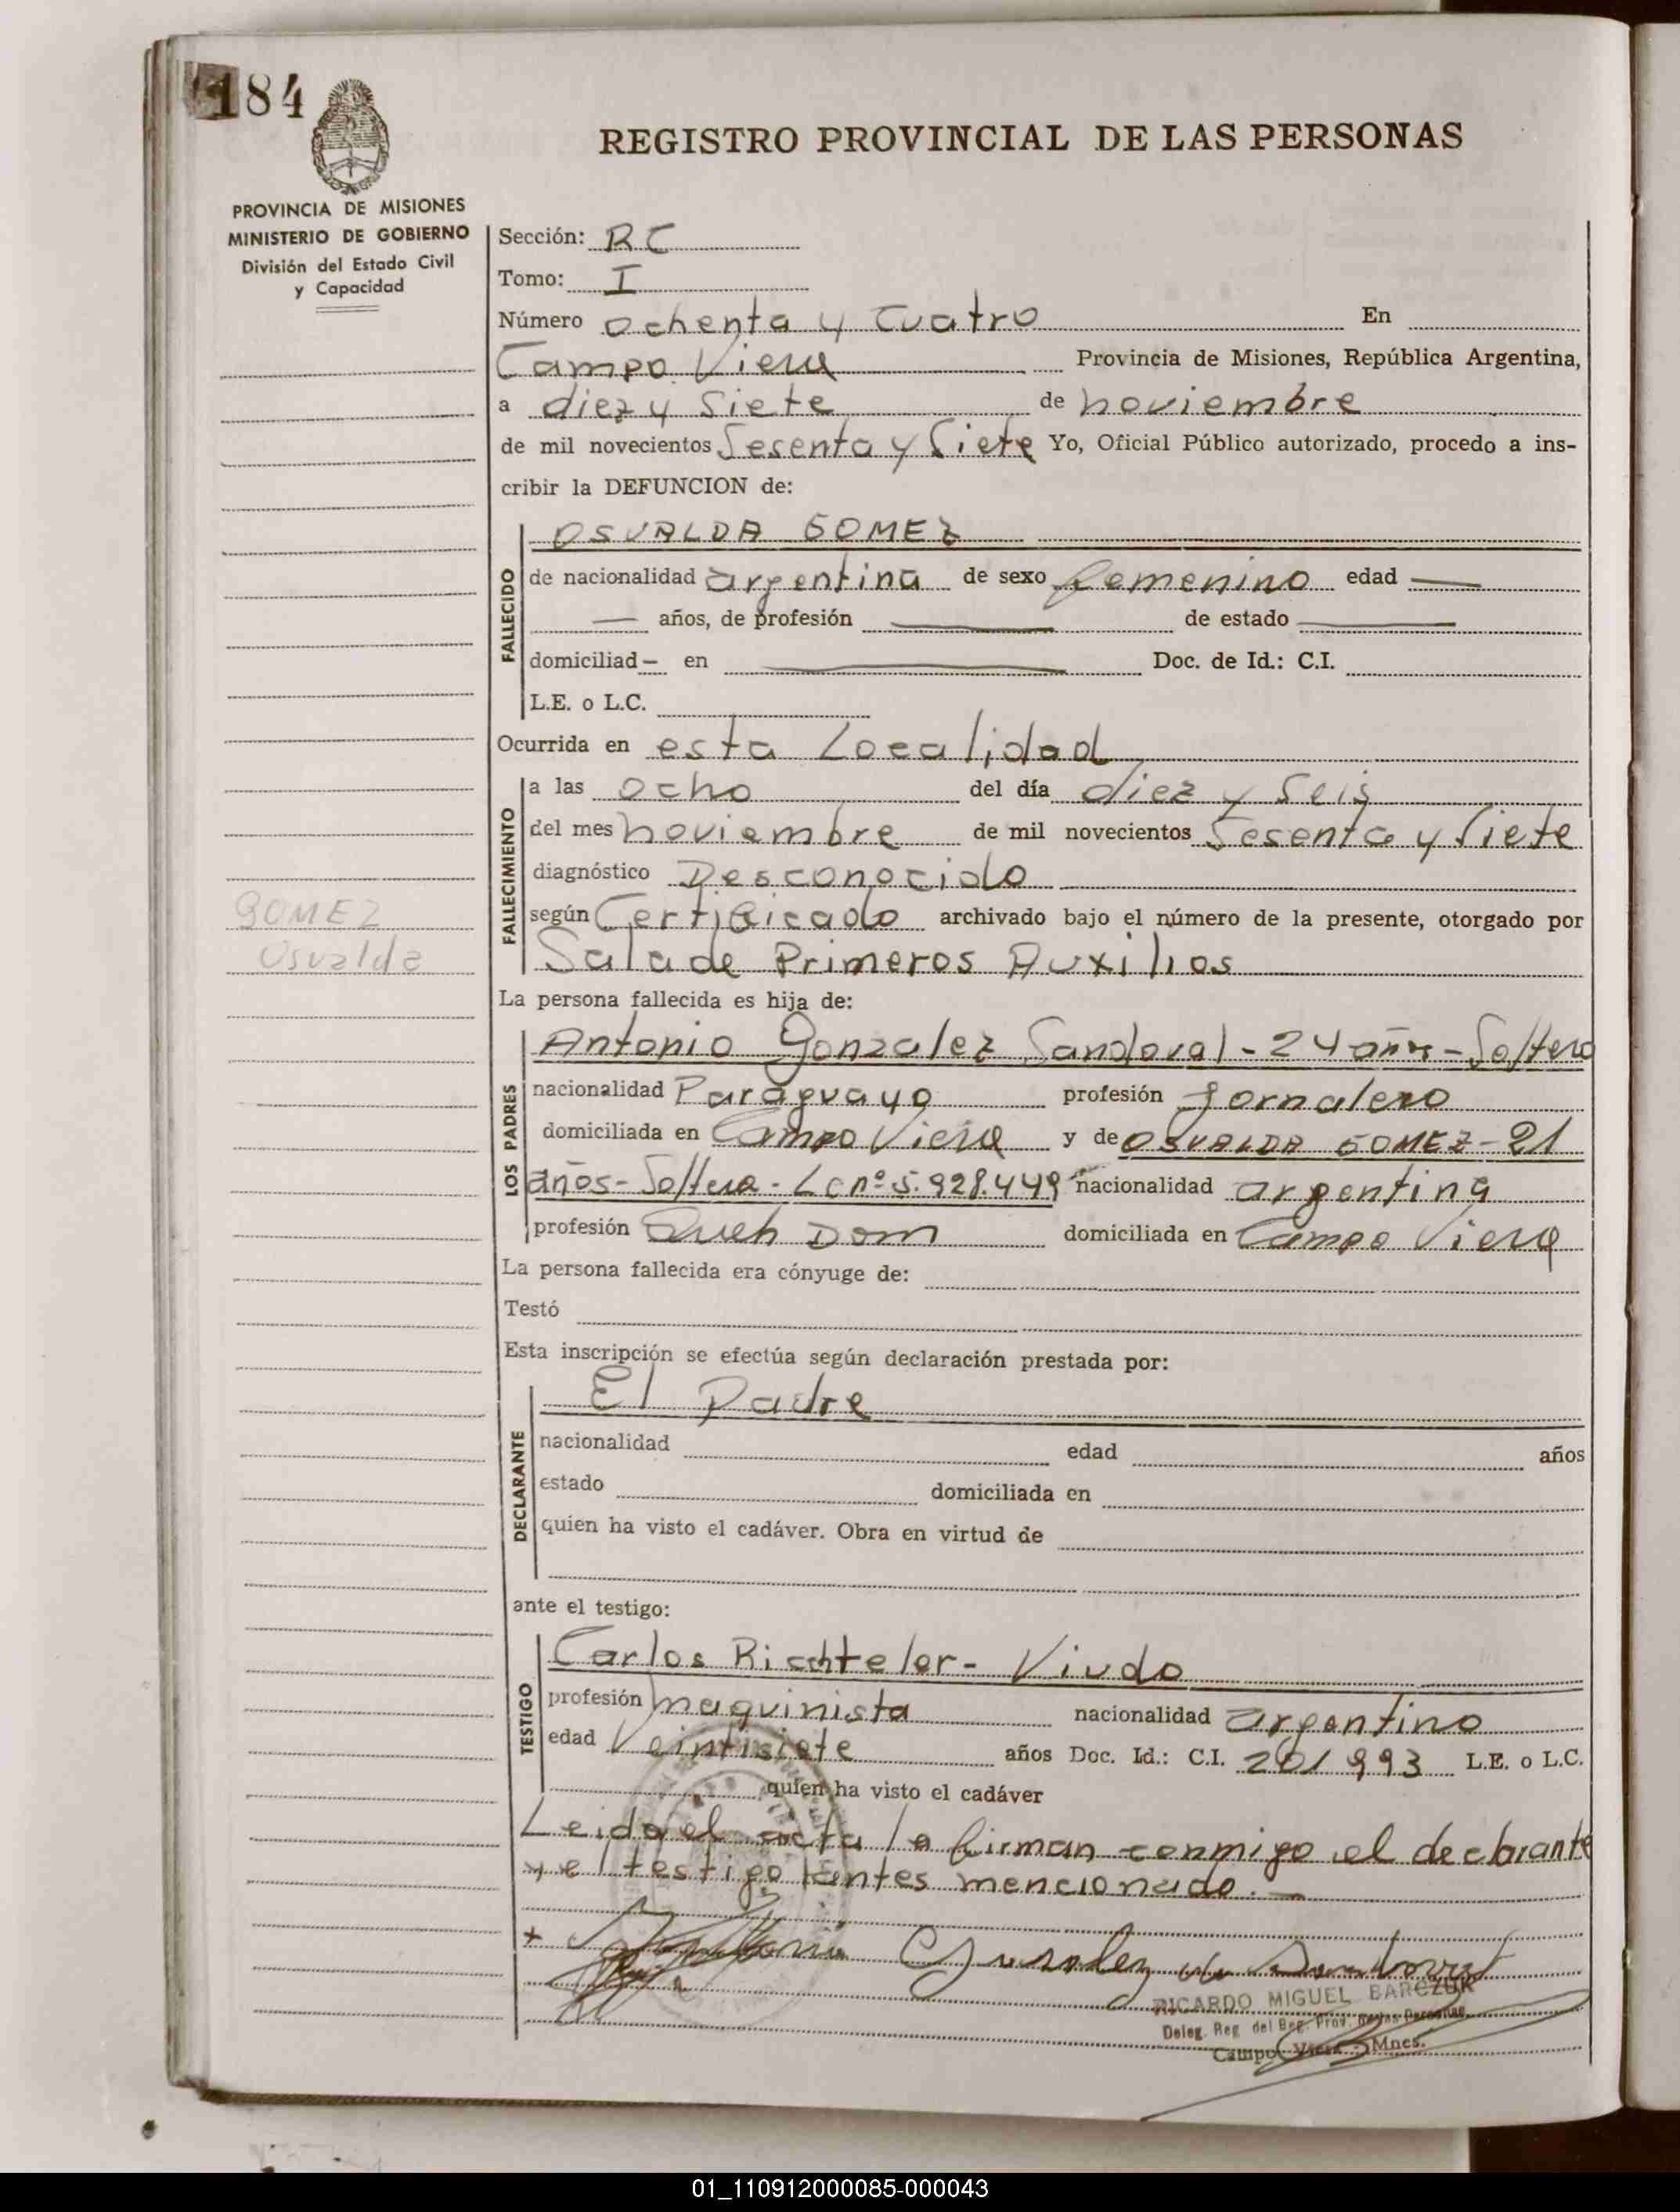 184
REGISTRO PROVINCIAL DE LAS PERSONAS
PROVINCIA DE MISIONES
MINISTERIO DE GOBIERNO
División del Estado Civil
y Capacidad
Sección: RC
Tomo: I
Número ochenta y cuatro En
Campo Viera Provincia de Misiones, República Argentina,
a diez y siete de noviembre
de mil novecientos Sesenta y Siete Yo, Oficial Público autorizado, procedo a ins-
cribir la DEFUNCION de:
FALLECIDO
OSVALDA GOMEZ
de nacionalidad argentina de sexo femenino edad —
— años, de profesión — de estado —
domiciliad — en — Doc. de Id.: C.I.
L.E. o L.C.
Ocurrida en esta Localidad
FALLECIMIENTO
a las ocho del día diez y seis
del mes noviembre de mil novecientos Sesenta y Siete
diagnóstico Desconocido
según Certificado archivado bajo el número de la presente, otorgado por
Sala de Primeros Auxilios
GOMEZ
Osvalda
La persona fallecida es hija de:
LOS PADRES
Antonio Gonzalez Sandoval - 24 años - Soltero
nacionalidad Paraguayo profesión Jornalero
domiciliada en Campo Viera y de OSVALDA GOMEZ - 21
años - Soltera - Lc nº 5.928.449 nacionalidad argentina
profesión Queh Dom domiciliada en Campo Viera
La persona fallecida era cónyuge de:
Testó
Esta inscripción se efectúa según declaración prestada por:
DECLARANTE
El Padre
nacionalidad edad años
estado domiciliada en
quien ha visto el cadáver. Obra en virtud de
ante el testigo:
TESTIGO
Carlos Richteler - Viudo
profesión maquinista nacionalidad argentino
edad Veintisiete años Doc. Id.: C.I. 201993 L.E. o L.C.
quien ha visto el cadáver
Leida el acta la firman conmigo el declarante
y el testigo antes mencionado. —
RICARDO MIGUEL BARCZUK
Deleg. Reg. del Reg. Prov. de las Personas
Campo Viera - Mnes.
01_110912000085-000043